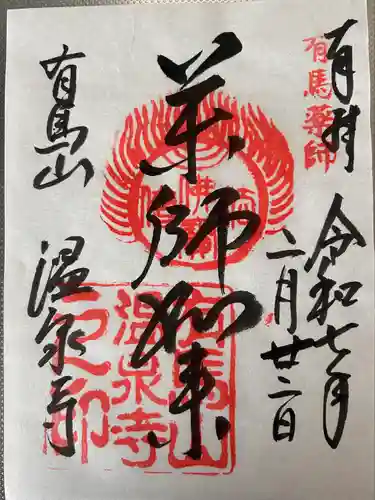 奉拝
有馬薬師
令和七年
二月廿二日
薬師如来
佛法僧寶
有馬山
温泉寺
有馬山
温泉寺
之印